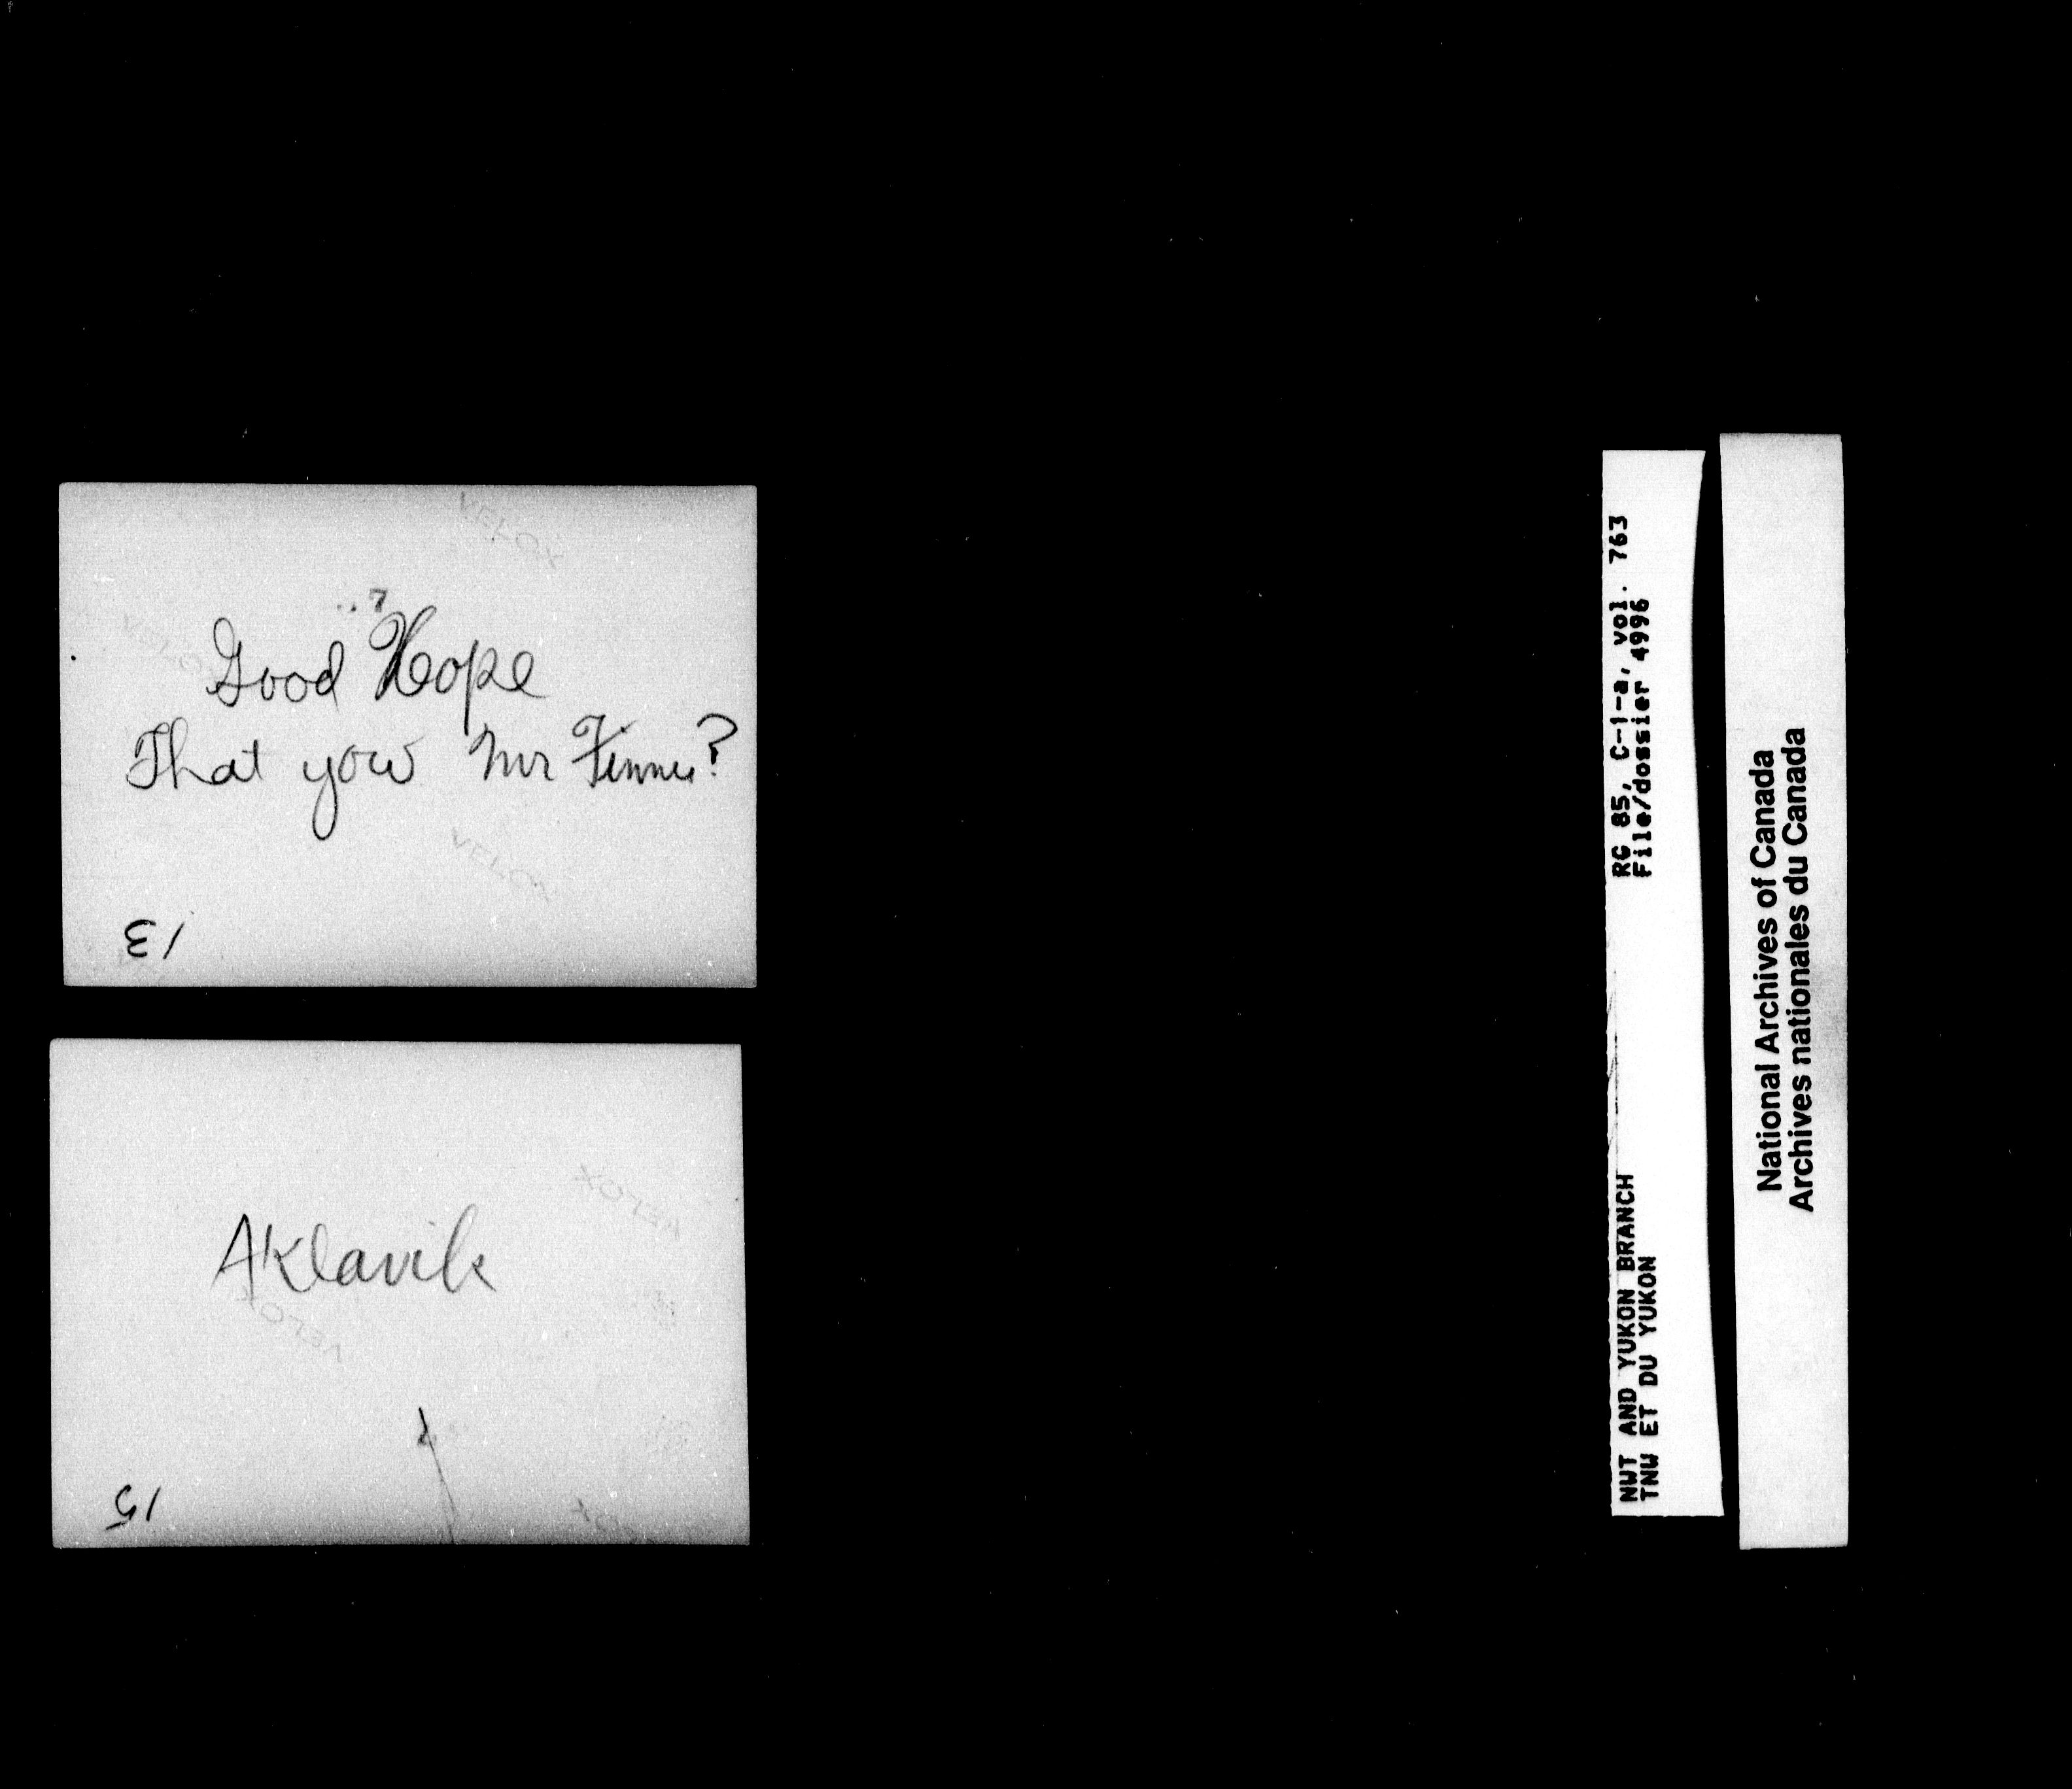 VELOX
7
Good Hope
That you Mr Finnie?
VELOX
13
Aklavik
VELOX
VELOX
15
RG 85, C-1-a, vol. 763
File/dossier 4996
NWT AND YUKON BRANCH
TNW ET DU YUKON
National Archives of Canada
Archives nationales du Canada